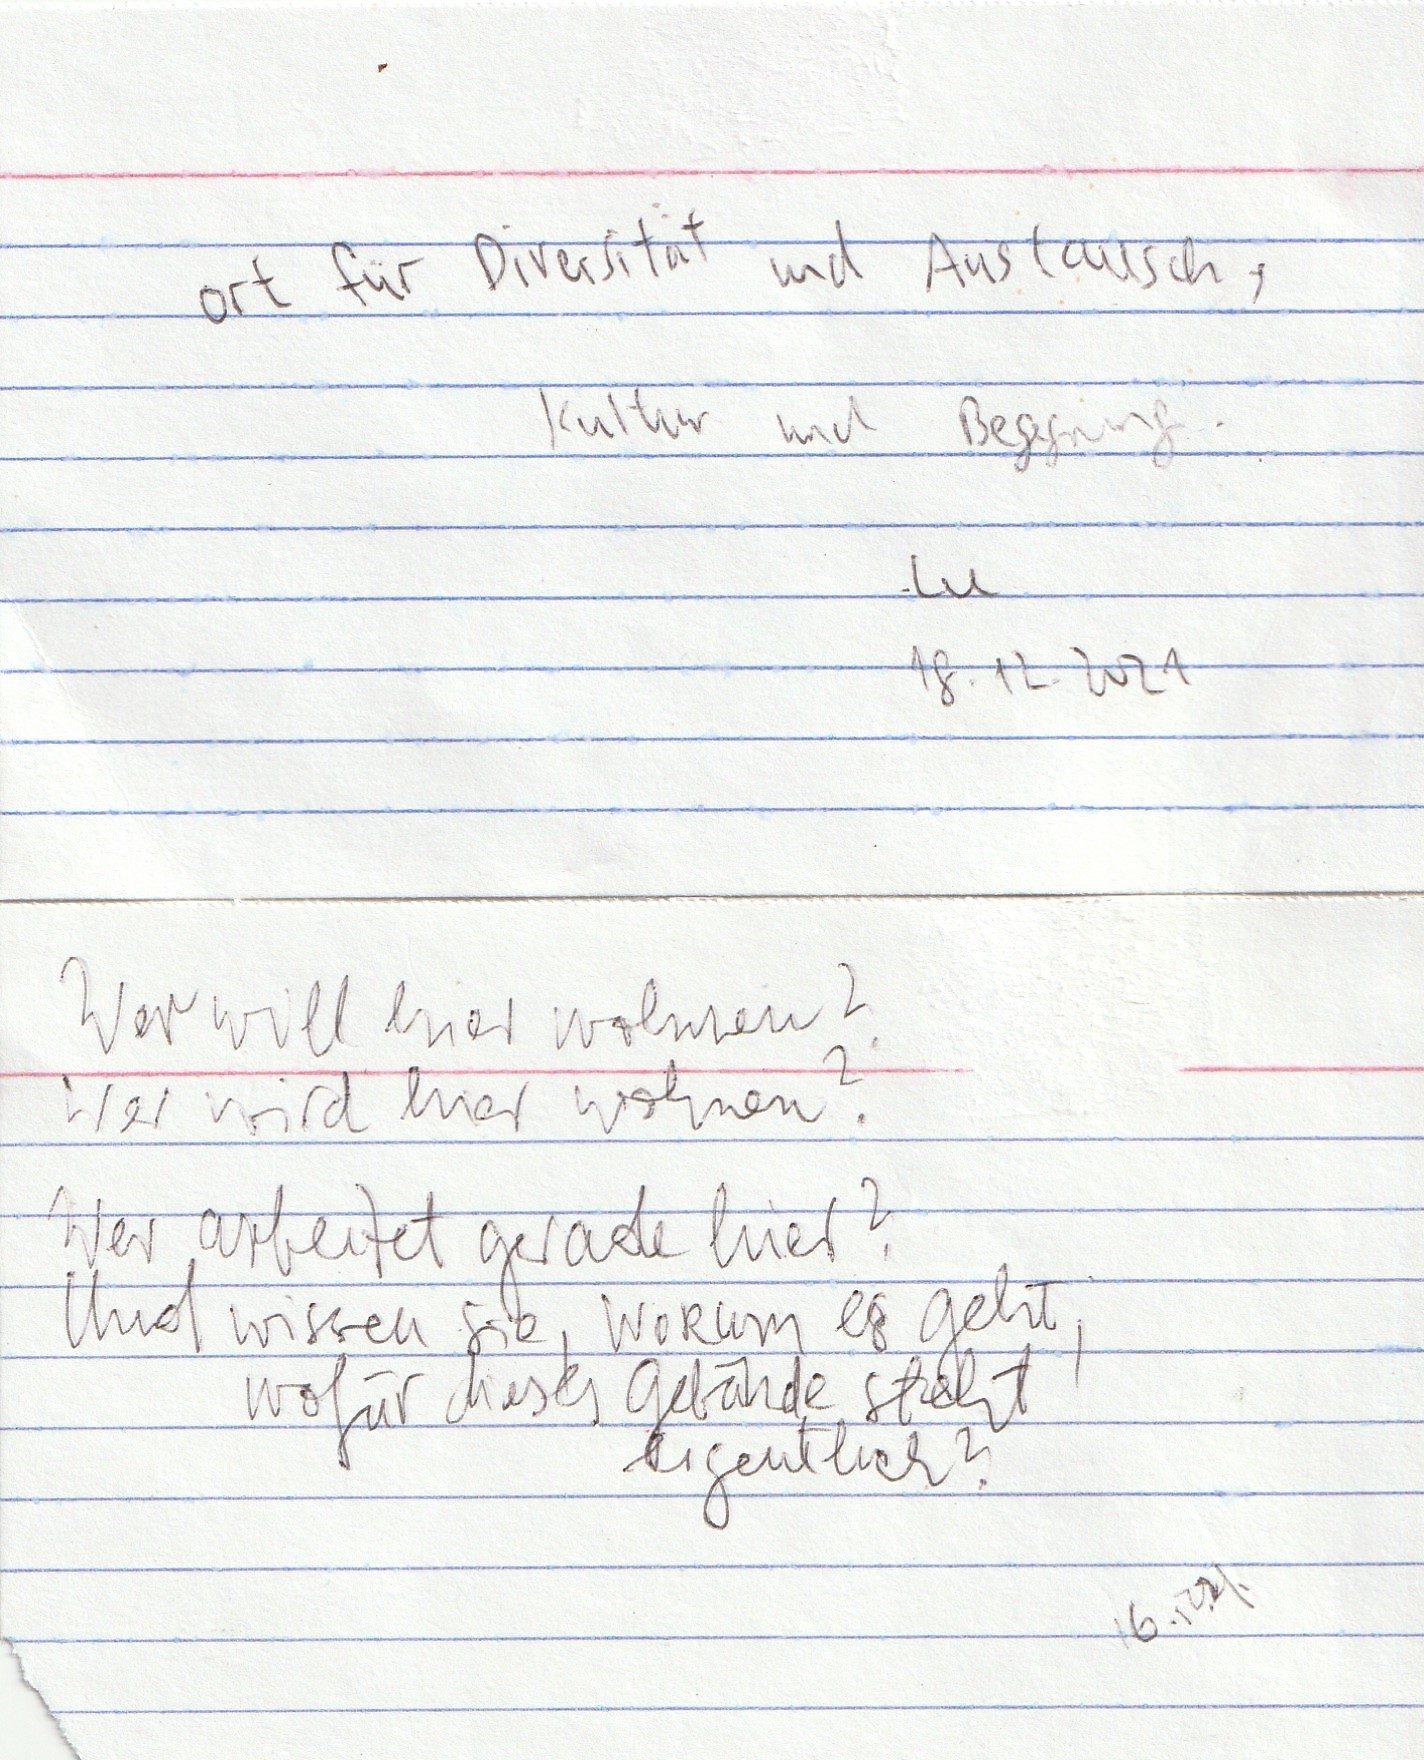 ort für Diversität und Austausch,
Kultur und Begegnung.
Lu
18.12.2021
Wer will hier wohnen?
Wer wird hier wohnen?
Wer arbeitet gerade hier?
Und wissen sie, worum es geht,
wofür dieses Gebäude steht
eigentlich?
16.